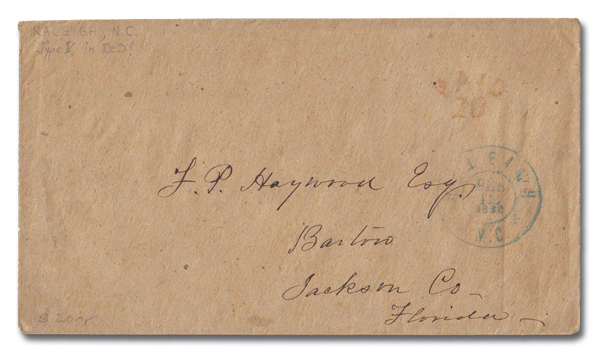 RALEIGH, N.C.
Type V in Red!
PAID
20
RALEIGH
DEC
1863
N.C.
F. P. Haywood Esq.
Bartow
Jackson Co
Florida
$200